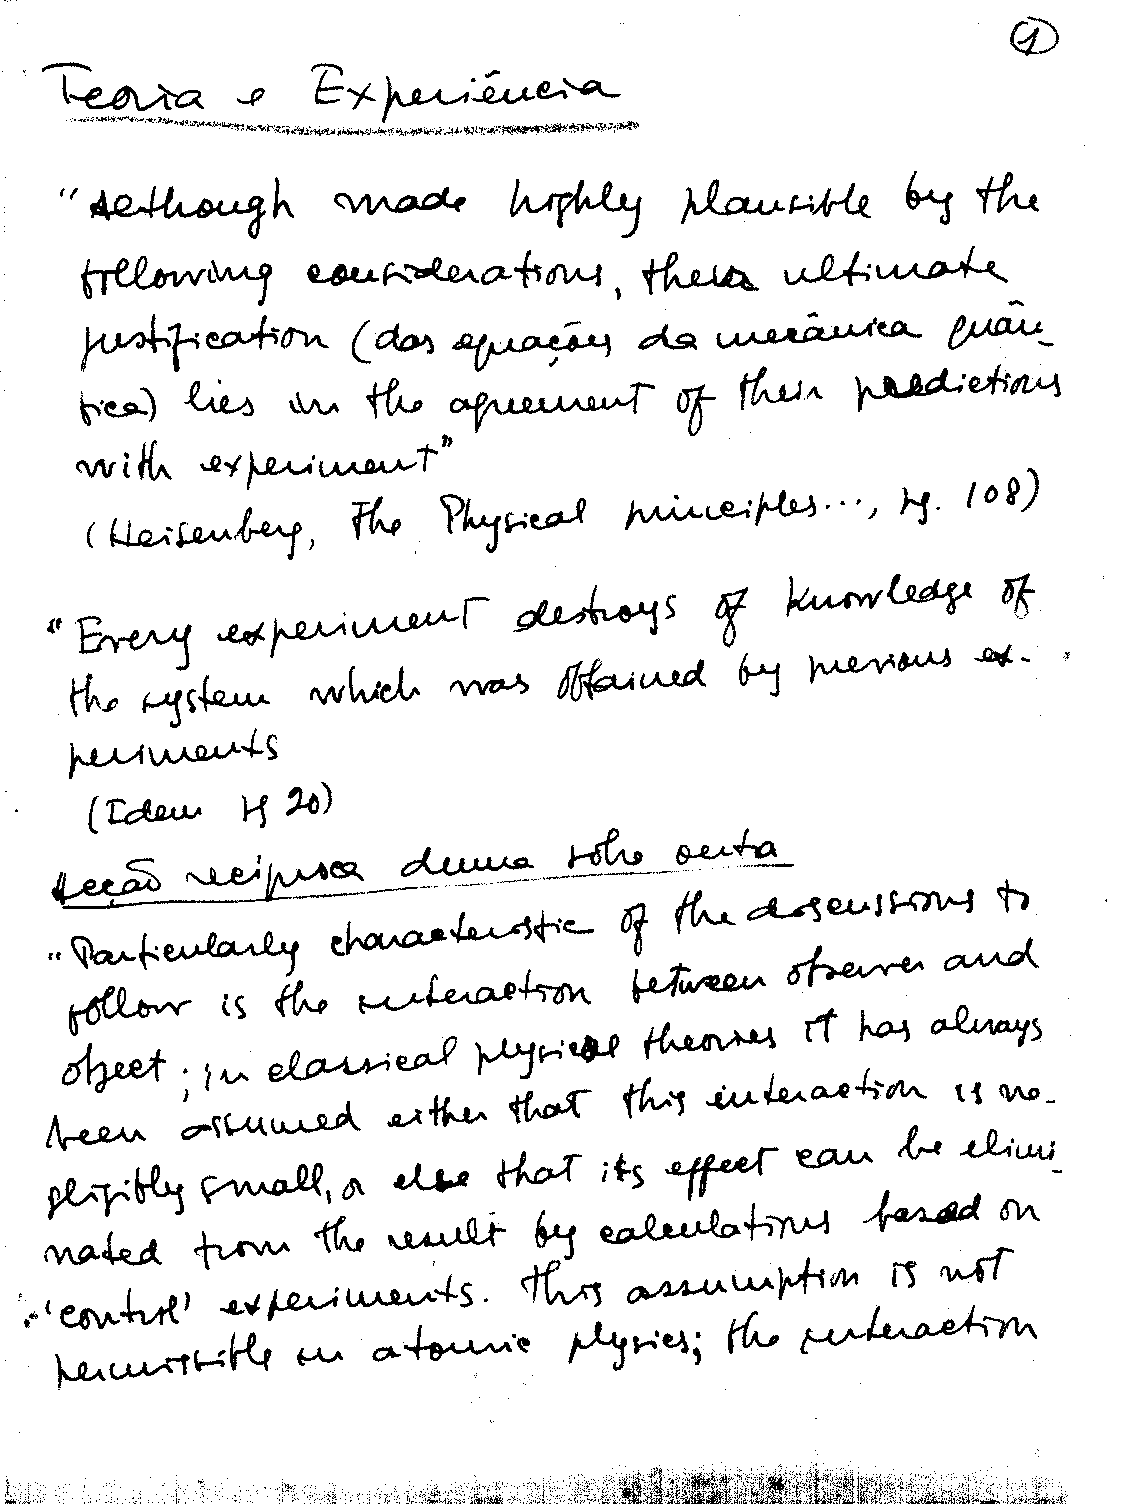 1
Teoria e Experiência
"Although made highly plausible by the
following considerations, their ultimate
justification (das equações da mecânica quân-
tica) lies in the agreement of their predictions
with experiment"
(Heisenberg, The Physical principles..., pg. 108)
"Every experiment destroys of knowledge of
the system which was obtained by previous ex-
periments
(Idem pg 20)
Acção recíproca duma sobre outra
"Particularly characteristic of the discussions to
follow is the interaction between observer and
object; in classical physical theories it has always
been assumed either that this interaction is ne-
gligibly small, or else that its effect can be elimi-
nated from the result by calculations based on
'control' experiments. This assumption is not
permissible in atomic physics; the interaction